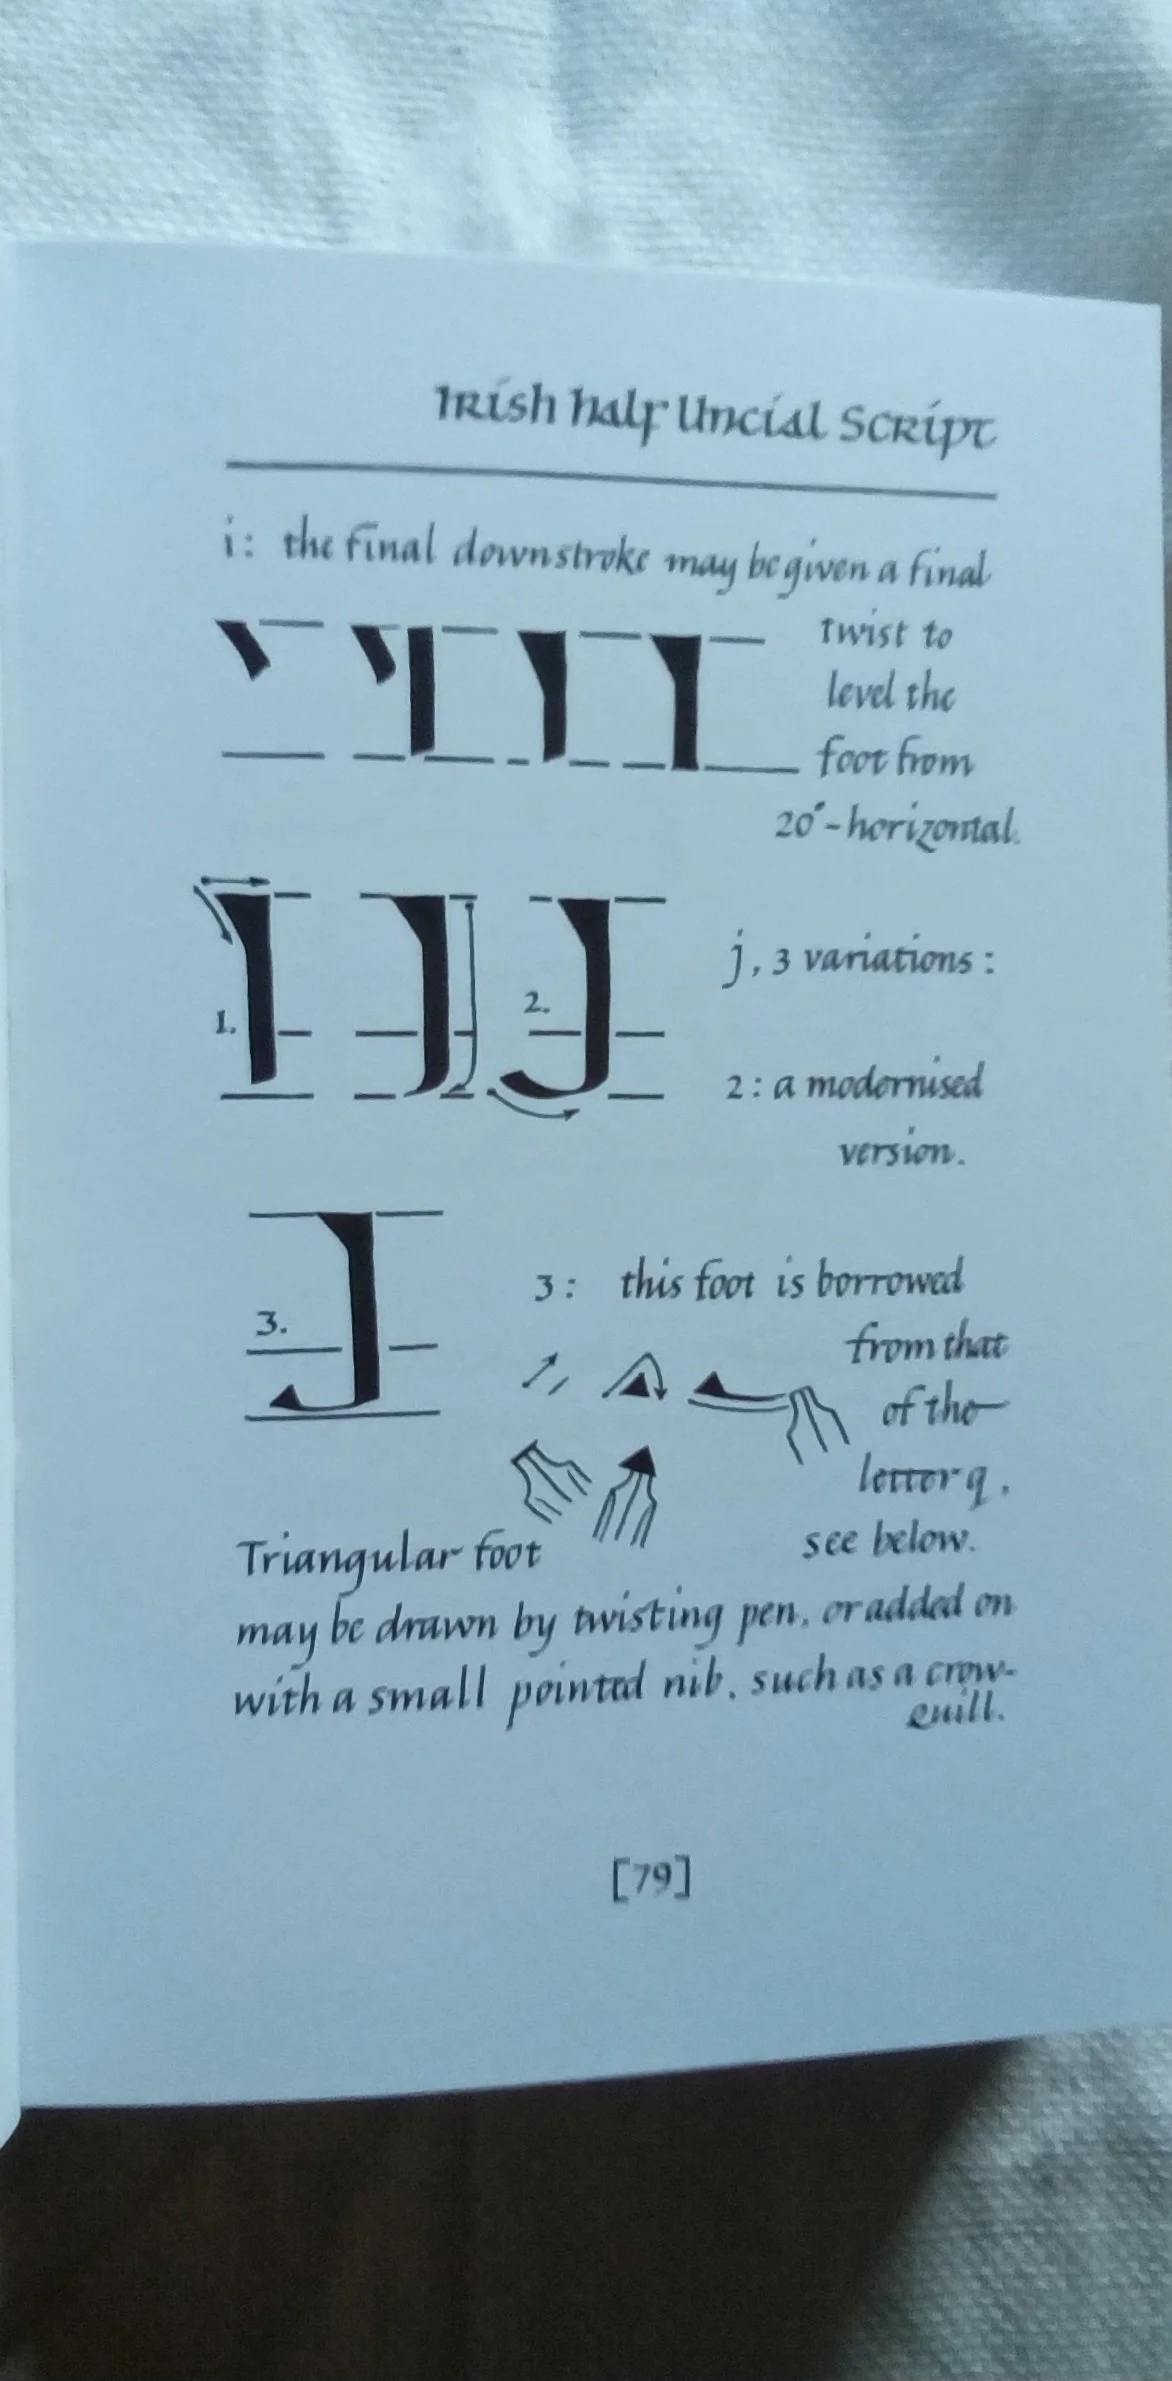 Irish Half Uncial Script
i: the final downstroke may be given a final
twist to
level the
foot from
20°-horizontal.
1.
2.
j, 3 variations:
2: a modernised
version.
3.
3: this foot is borrowed
from that
of the
letter q,
see below.
Triangular foot
may be drawn by twisting pen, or added on
with a small pointed nib, such as a crow-
quill.
[79]